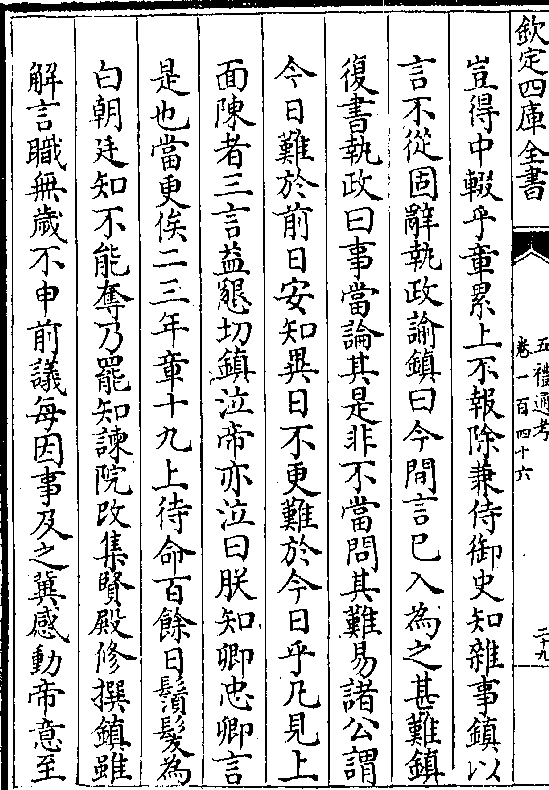 欽定四庫全書
五禮通考
卷一百四十六
二十九
豈得中輟乎章累上不報除兼侍御史知雜事鎮以
言不從固辭執政諭鎮曰今間言已入為之甚難鎮
復書執政曰事當論其是非不當問其難易諸公謂
今日難於前日安知異日不更難於今日乎凡見上
面陳者三言益懇切鎮泣帝亦泣曰朕知卿忠卿言
是也當更俟二三年章十九上待命百餘日鬚髮為
白朝廷知不能奪乃罷知諫院改集賢殿修撰鎮雖
解言職無歲不申前議每因事及之冀感動帝意至